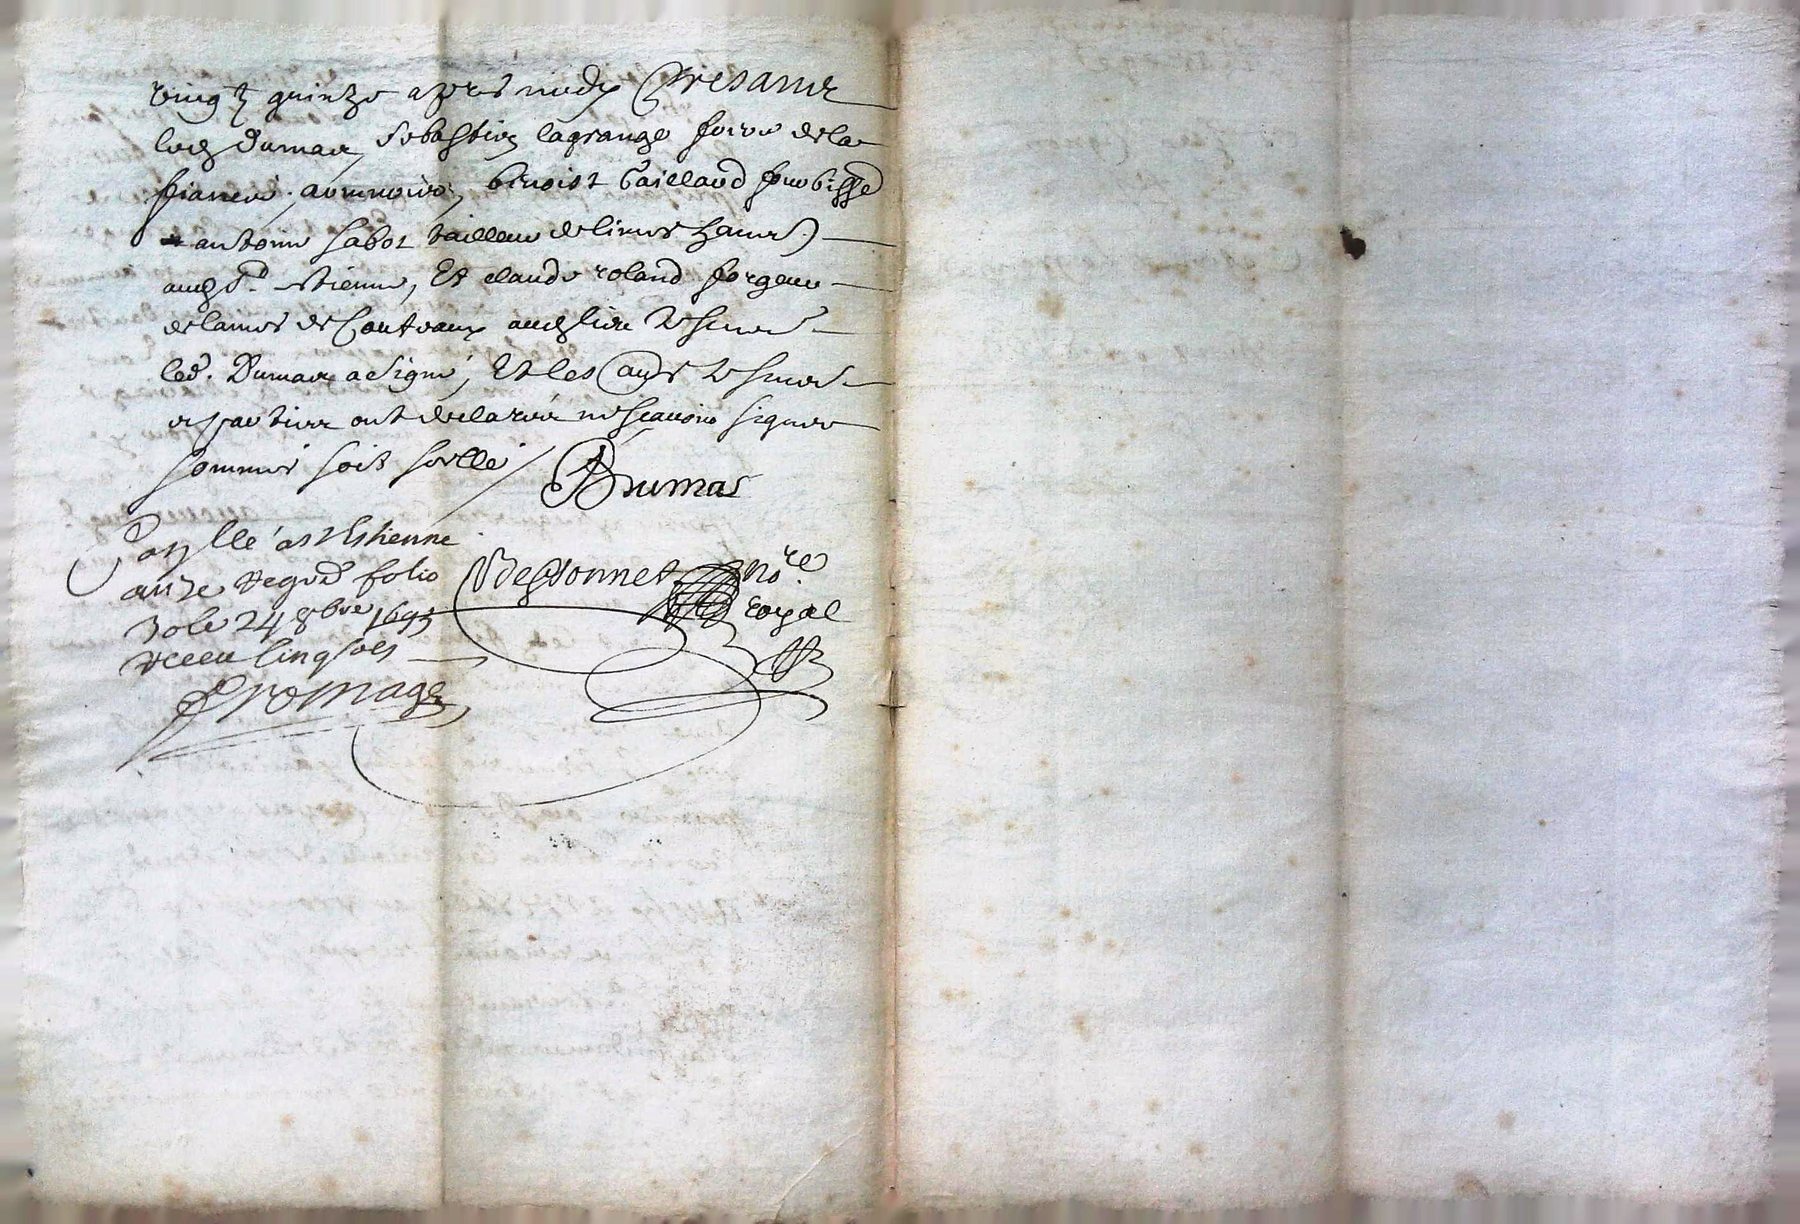 vingt quinze apres midy presans
Luc Dumas, Sebastien lagrange
armurier, benoist Caillaud fourbiss
antoine sabot tailleur de limes hans
aud st. estienne, Et claude roland forgeur
de lames de Couteaux aud lieu tesmoins
led. Dumas a signé, Et les autres tesmoins
et parties ont declaré ne sçavoir signer
sommés soit scellé
Dumas
Con llé a st Estienne
au 2e regre folio
30 le 24 8bre 1695
Receu cinq sols
fromage
Desonnet no.re
royal